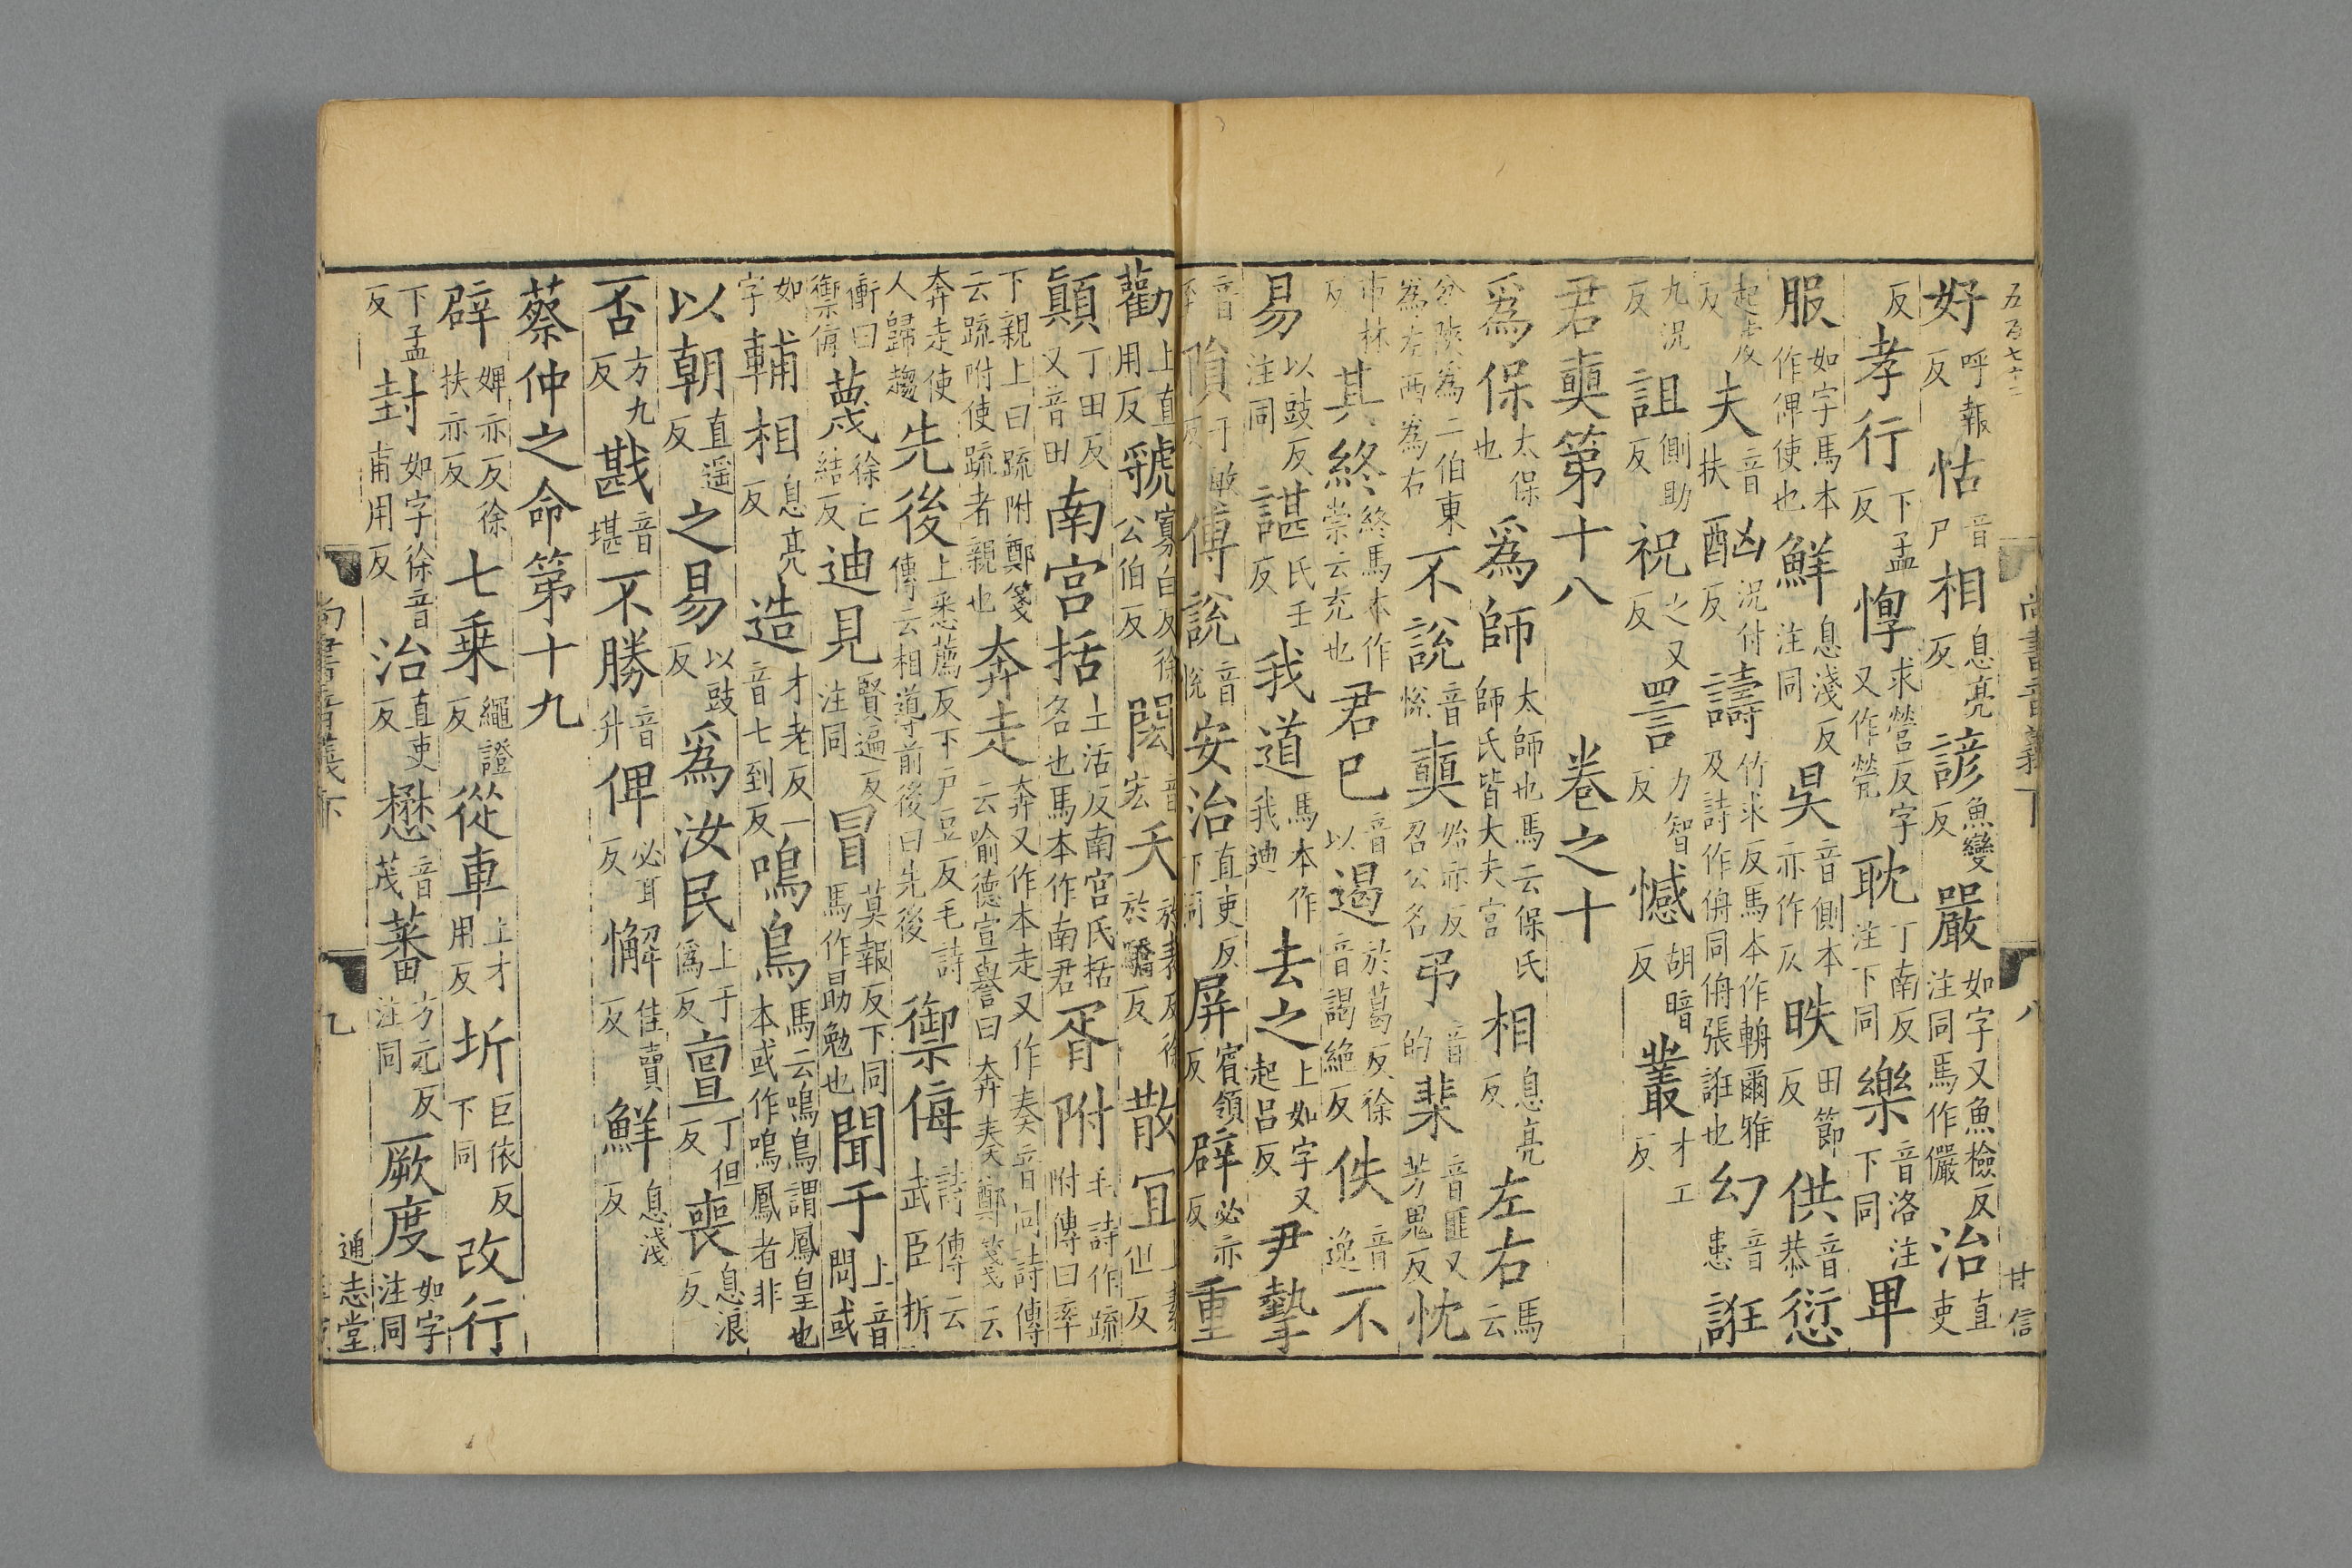 五百七十二
尚書音義下 八 甘信
好呼報反怙音戶相息亮反諺魚變反嚴如字又魚檢反注同馬作儼治直吏
反孝行下孟反惸求營反字又作煢耽丁南反注下同樂音洛注下同卑
服如字馬本作俾使也鮮息淺反注同昃音側本亦作仄昳田節反供音恭愆
起虔反夫音扶酗況付反譸竹求反馬本作輈爾雅及詩作侜同侜張誑也幻音患誑
九況反詛側助反祝之又反詈力智反憾胡暗反叢才工反
君奭第十八 卷之十
爲保太保也爲師太師也馬云保氏師氏皆大夫官相息亮反左右馬云
分陝爲二伯東爲左西爲右不說音悅奭始亦反召公名弔音的棐音匪又芳鬼反忱
市林反其終終馬本作崇云充也君已音以遏於葛反徐音謁絕反佚音逸不
易以豉反注同諶氏壬反我道馬本作我迪去之上如字又起呂反尹摯
音至隕于敏反傅說音悅安治直吏反下同屏賓領反辟必亦反重
勸上直用反虢寡白反徐公伯反閎音宏夭於表反徐於驕反散宜上素但反
顛丁田反又音田南宮括土活反南宮氏括名也馬本作南君胥附毛詩作疏附傳曰率
下親上曰疏附鄭箋云疏附使疏者親也奔走奔又作本走又作奏音同詩傳云喻德宣譽曰奔奏鄭箋云
奔走使人歸趨先後上悉薦反下戶豆反毛詩傳云相導前後曰先後禦侮詩傳云武臣折
衝曰禦侮蔑徐亡結反迪見賢遍反注同冒莫報反下同馬作勖勉也聞于上音問或
如字輔相息亮反造才老反一音七到反鳴鳥馬云鳴鳥謂鳳皇也本或作鳴鳳者非
以朝直遥反之易以豉反爲汝民上于僞反亶丁但反喪息浪反
否方九反戡音堪不勝音升俾必耳反懈佳賣反鮮息淺反
蔡仲之命第十九
辟婢亦反徐扶亦反七乘繩證反從車上才用反圻巨依反下同改行
下孟反封如字徐音甫用反治直吏反懋音茂蕃方元反注同厥度如字注同
通志堂
尚書音義下 九